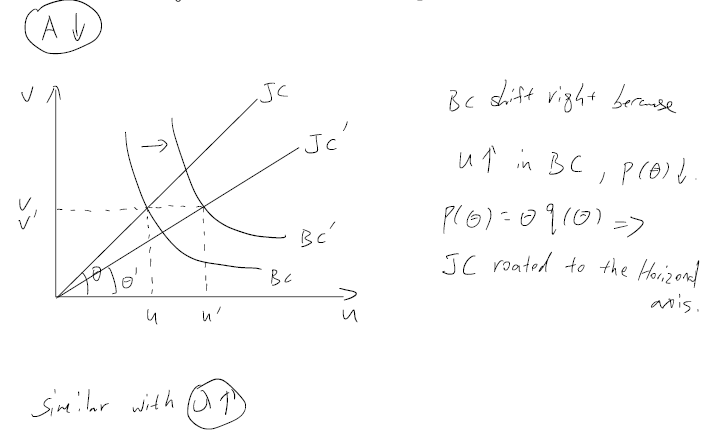 A ↓
V
JC
JC'
→
V
V'
BC'
BC
θ
θ'
u
u'
u
BC shift right because
u↑ in BC, P(θ)↓.
P(θ) = θ q(θ) =>
JC roated to the Horizonal
axis.
similar with U↑